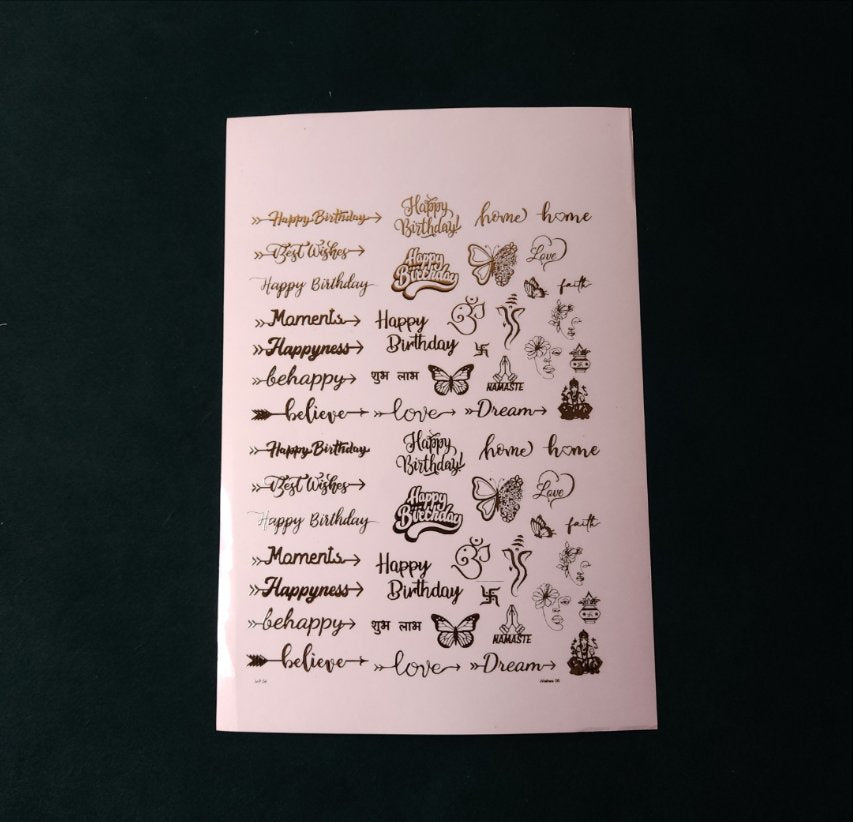 Happy Birthday
Happy Birthday!
home home
Best Wishes
Happy Birthday
Love
Happy Birthday
faith
Moments
Happy Birthday
Happyness
behappy
शुभ लाभ
NAMASTE
believe
love
Dream
Happy Birthday
Happy Birthday!
home home
Best Wishes
Happy Birthday
Love
Happy Birthday
faith
Moments
Happy Birthday
Happyness
behappy
शुभ लाभ
NAMASTE
believe
love
Dream